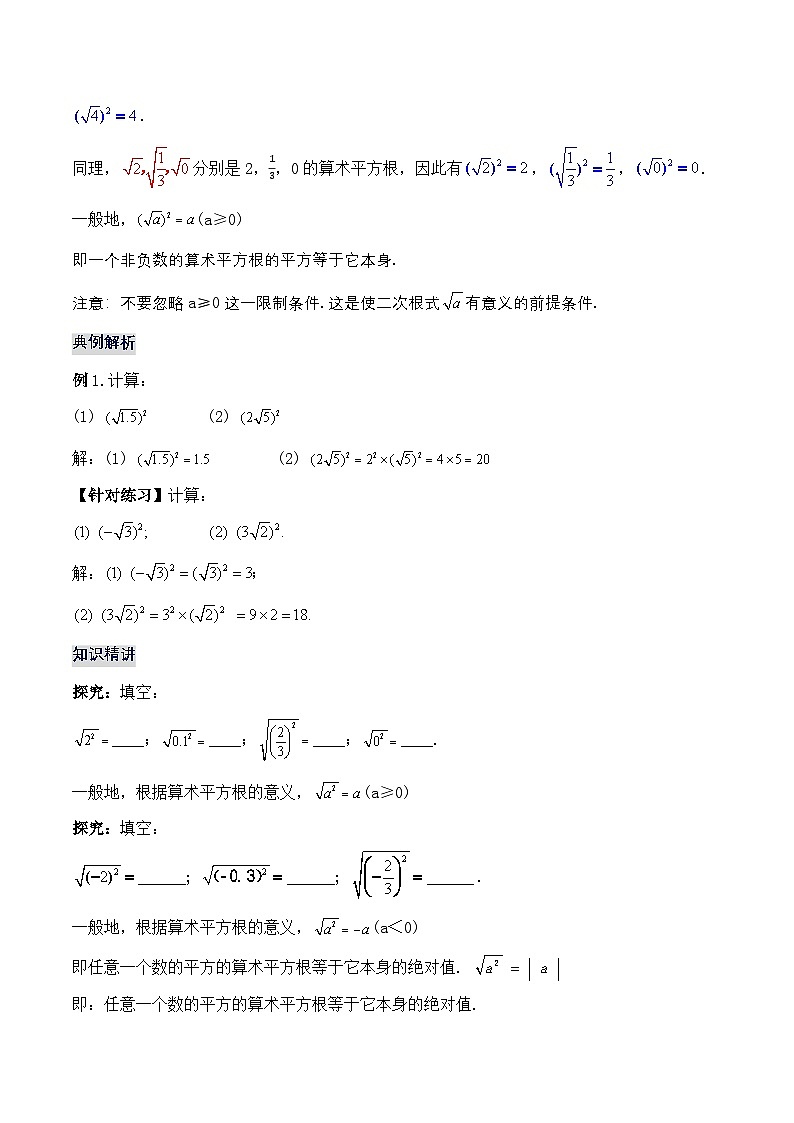 (√4)²=4.
同理，√2,√(1/3),√0分别是2，1/3，0的算术平方根，因此有(√2)²=2，(√(1/3))²=1/3，(√0)²=0.
一般地，(√a)²=a(a≥0)
即一个非负数的算术平方根的平方等于它本身.
注意：不要忽略a≥0这一限制条件.这是使二次根式√a有意义的前提条件.
典例解析
例1.计算：
(1) (√1.5)² (2) (2√5)²
解：(1) (√1.5)²=1.5 (2) (2√5)²=2²×(√5)²=4×5=20
【针对练习】计算：
(1) (-√3)²; (2) (3√2)².
解：(1) (-√3)²=(√3)²=3;
(2) (3√2)²=3²×(√2)² =9×2=18.
知识精讲
探究：填空：
√2²=____；√0.1²=____；√(2/3)²=____；√0²=____.
一般地，根据算术平方根的意义，√a²=a(a≥0)
探究：填空：
√(-2)²=______；√(-0.3)²=______；√(-2/3)²=______.
一般地，根据算术平方根的意义，√a²=-a(a＜0)
即任意一个数的平方的算术平方根等于它本身的绝对值. √a² = | a |
即：任意一个数的平方的算术平方根等于它本身的绝对值.